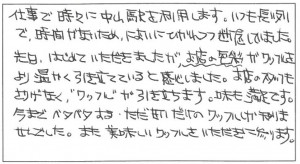 仕事で時々に中山駅を利用します。いつも長い列
で、時間がないため、
先日、はじめていただきましたが、お店の雰囲気がワッフルを
より温かく引き立てていると感じました。お店の
なく、"ワッフル"が引き立ちます。味も満足です。
今までベタベタする・ただ甘いだけのワッフルしか知りま
せんでした。また美味しいワッフルをいただきに参ります。